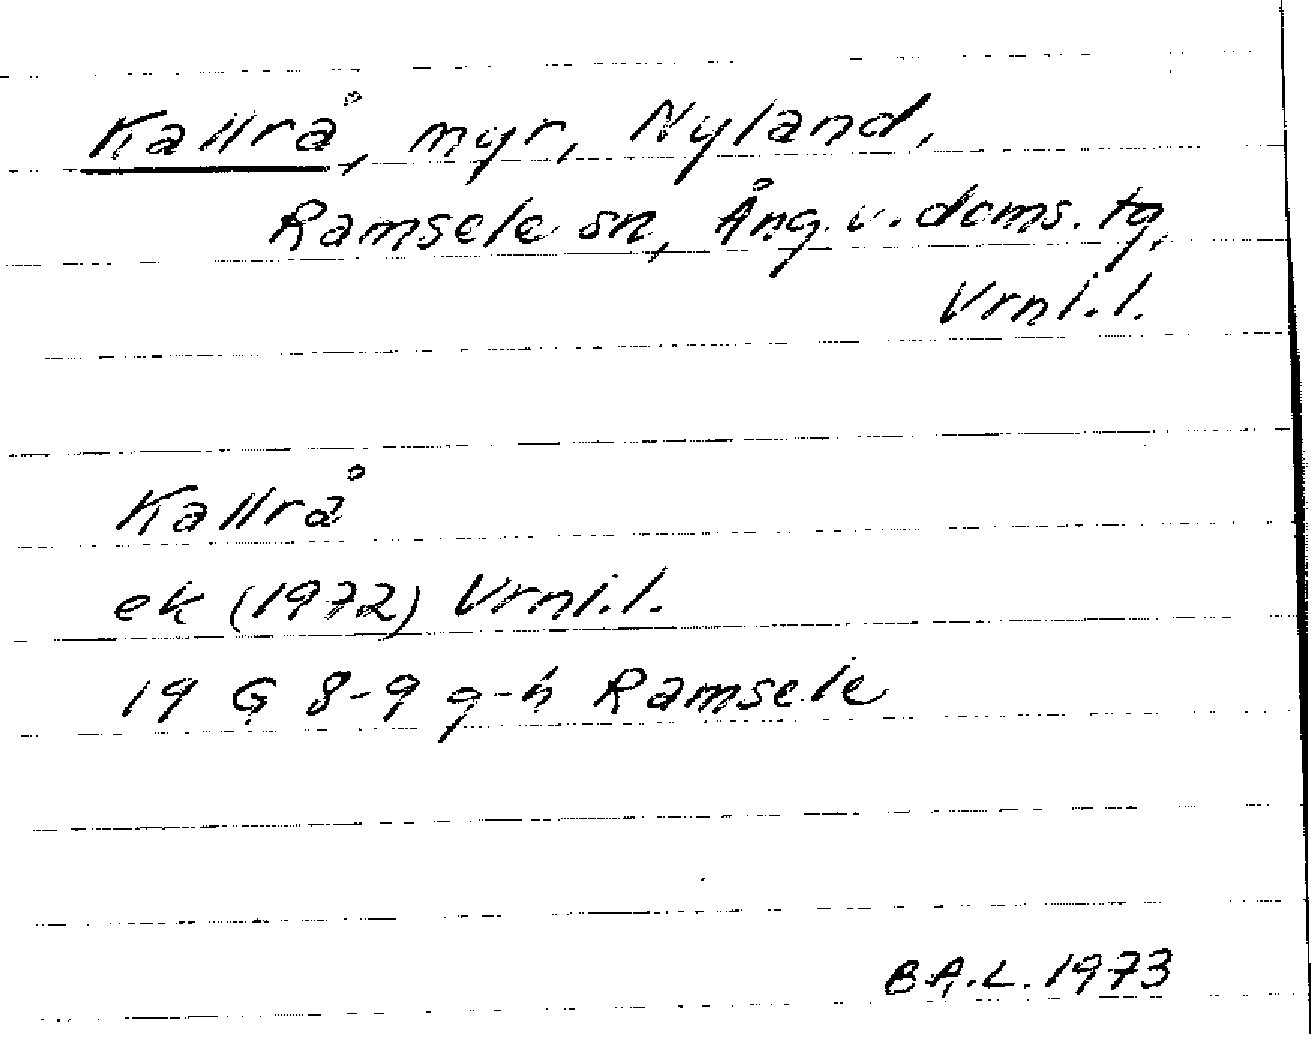 Kallrå, myr, Nyland,
Ramsele sn, Ång. v. doms. tg,
Vrnl.l.
Kallrå
ek (1972) Vrnl.l.
19 G 8-9 g-h Ramsele
B.A.L. 1973